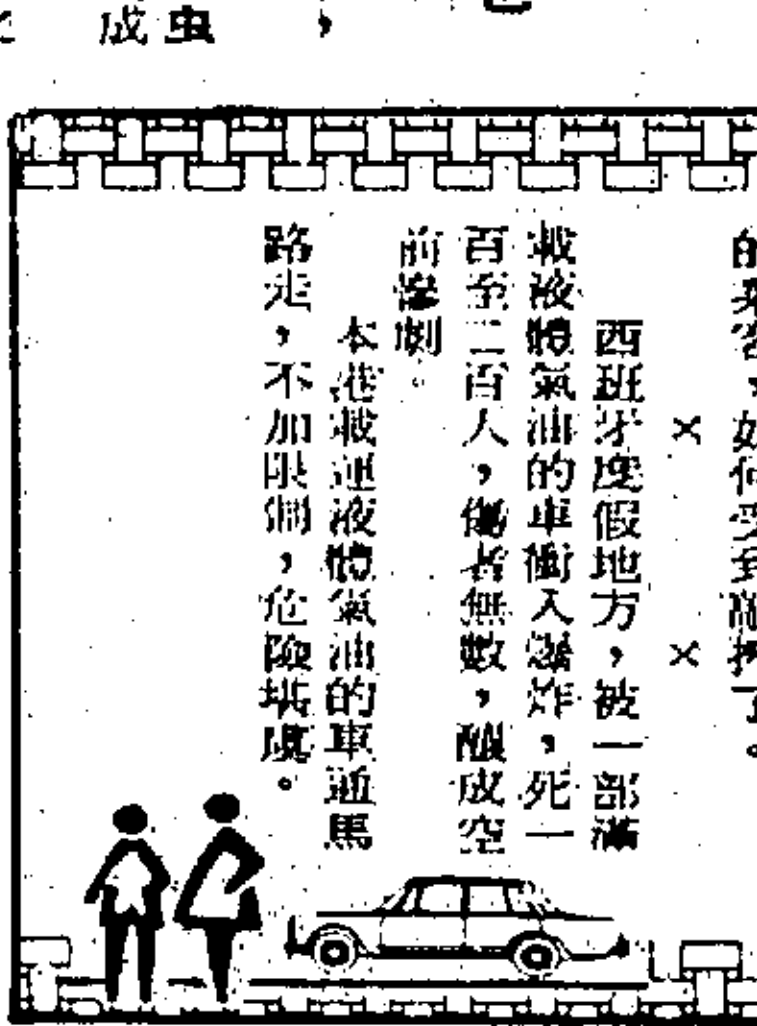 成虫，
的乘客，如何受到敲掉了。
× ×
西班牙度假地方，被一部滿
載液體氣油的車衝入爆炸，死一
百至二百人，傷者無數，釀成空
前慘劇。
本港載運液體氣油的車通馬
路走，不加限制，危險堪虞。